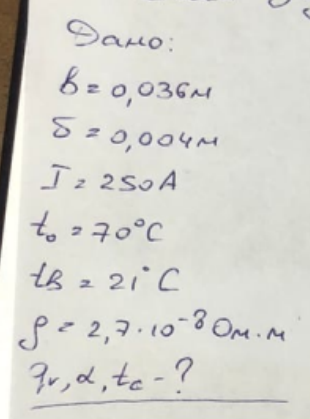 Дано:
b = 0,036м
δ = 0,004м
I = 250А
t₀ = 70°C
tв = 21°C
ρ = 2,7·10⁻⁸ Ом·м
qᵥ, α, tc - ?